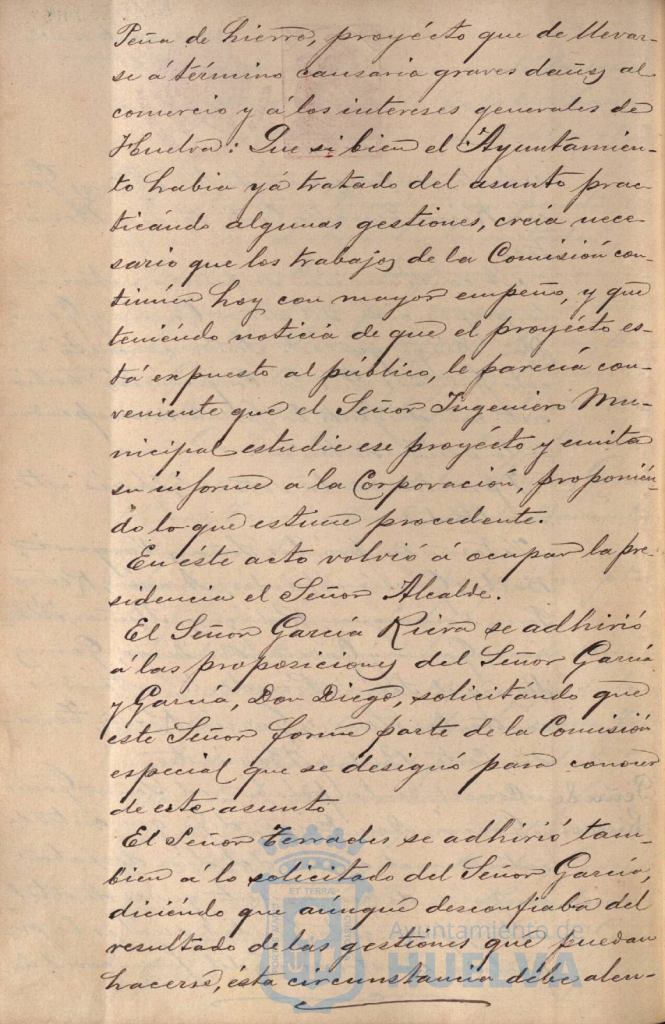 Peña de hierro, proyécto que de llevar-
se á término causaria graves daños al
comercio y á los intereses generales de
Huelva: Que si bien el Ayuntamien-
to habia yá tratado del asunto prac-
ticándo algunas gestiones, creia nece-
sario que los trabajos de la Comisión con-
tinúen hoy con mayor empeño, y que
teniéndo noticia de que el proyécto es-
tá expuesto al público, le parecia con-
veniente que el Señor Ingeniero Mu-
nicipal estudie ese proyécto y emita
su informe á la Corporación, proponién-
do lo que estime procedente.
En éste acto volvió á ocupar la pre-
sidencia el Señor Alcalde.
El Señor García Riera se adhirió
á las proposiciones del Señor García
y García, Don Diego, solicitándo que
este Señor forme parte de la Comisión
especial que se designó para conocer
de este asunto
El Señor Terrades se adhirió tam-
bien á lo solicitado del Señor García,
diciéndo que aúnque desconfiaba del
resultado de las gestiones que puedan
hacerse, ésta circunstancia débe alen-
ET TERRAE
Ayuntamiento de
HUELVA